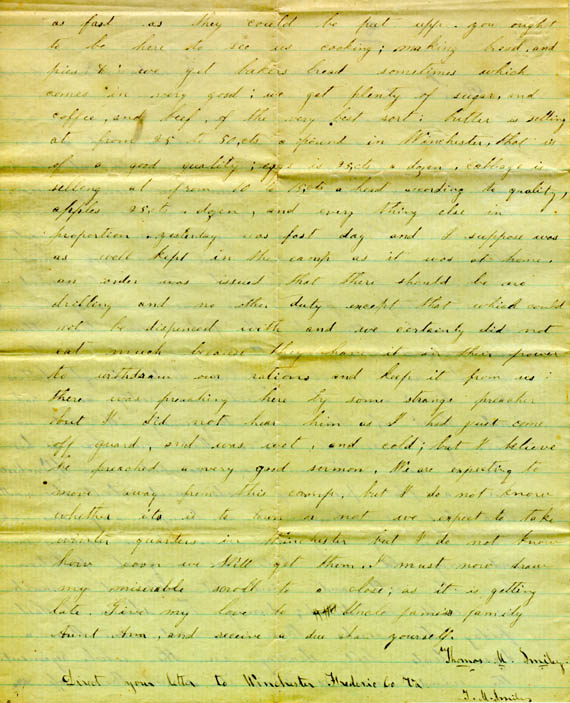 as fast as they could be put upp. you ought
to be here to see us cooking; making bread, and
pies &c we get bakers bread sometimes which
comes in very good; we get plenty of sugar, and
coffee, and beef, of the very best sort: butter is selling
at from 25 to 50.cts a pound in Winchester, that is
of a good quality; eggs is 25cts a dozen, cabbage is
selling at from 10 to 15cts a head according to quality,
apples 25.cts. dozen, and every thing else in
proportion. yesterday was fast day and I suppose was
as well kept in the camp as it was at home.
an order was issued that there should be no
drilling and no other duty except that which could
not be dispenced with and we certainly did not
eat much because they have it in their power
to withdraw our rations and keep it from us:
there was preaching here by some strange preacher
but I did not hear him as I had just come
off guard, and was wet, and cold; but I believe
he preached a very good sermon. We are expecting to
move away from this camp. but I do not know
whether its is to town or not we expect to take
winter quarters in Winchester but I do not know
how soon we Will get them. I must now draw
my miserable scroll to a close; as it is getting
late. Give my love to Uncle James family
Aunt Ann, and receive a due share yourself.
Thomas M. Smiley
Direct your letter to Winchester Frederic Co Va
T. M. Smiley